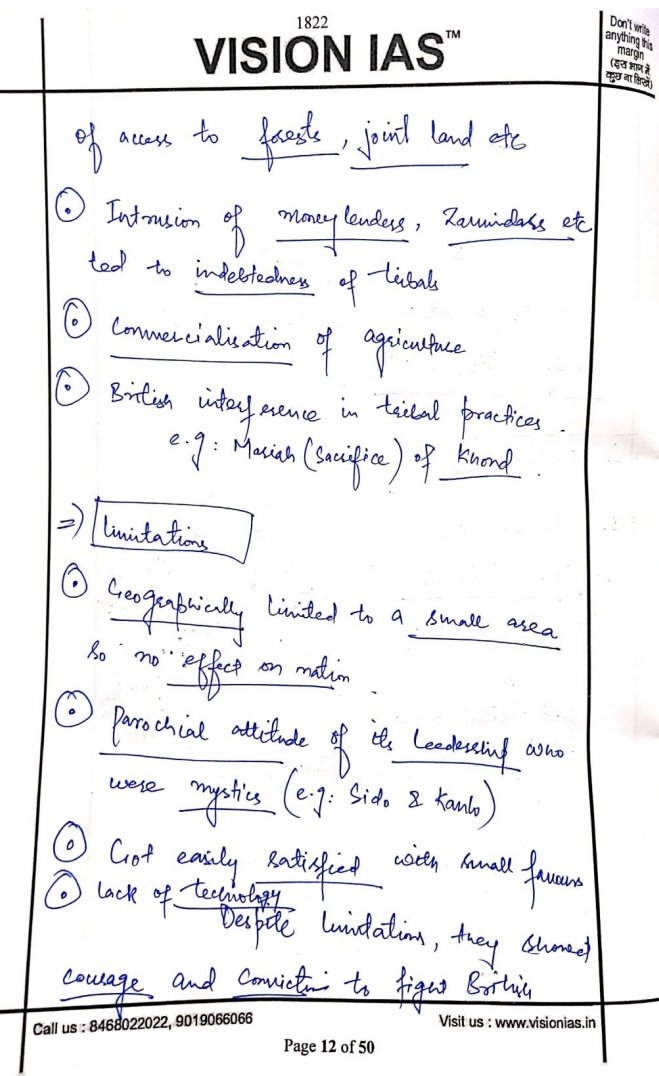 1822
VISION IAS™
Don't write
anything this
margin
(इस भाग में
कुछ ना लिखें)
of access to forests, joint land etc
Intrusion of money lenders, Zamindars etc
led to indebtedness of tribals
Commercialisation of agriculture
British interference in tribal practices.
e.g: Mariah (Sacrifice) of Khond.
=) Limitations
Geographically limited to a small area
so no effect on nation
Parochial attitude of its leadership who
were mystics (e.g: Sido & Kanho)
Got easily satisfied with small favours
Lack of technology
Despite limitations, they showed
courage and conviction to fight British
Call us : 8468022022, 9019066066
Visit us : www.visionias.in
Page 12 of 50